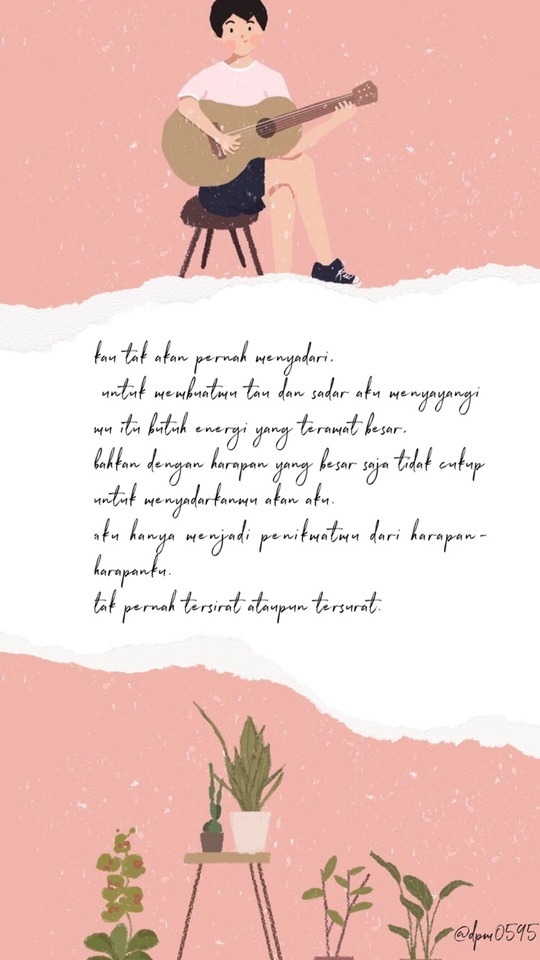 kau tak akan pernah menyadari.
untuk membuatmu tau dan sadar aku menyayangi
mu itu butuh energi yang teramat besar.
bahkan dengan harapan yang besar saja tidak cukup
untuk menyadarkanmu akan aku.
aku hanya menjadi penikmatmu dari harapan-
harapanku.
tak pernah tersirat ataupun tersurat.
@dpm0595